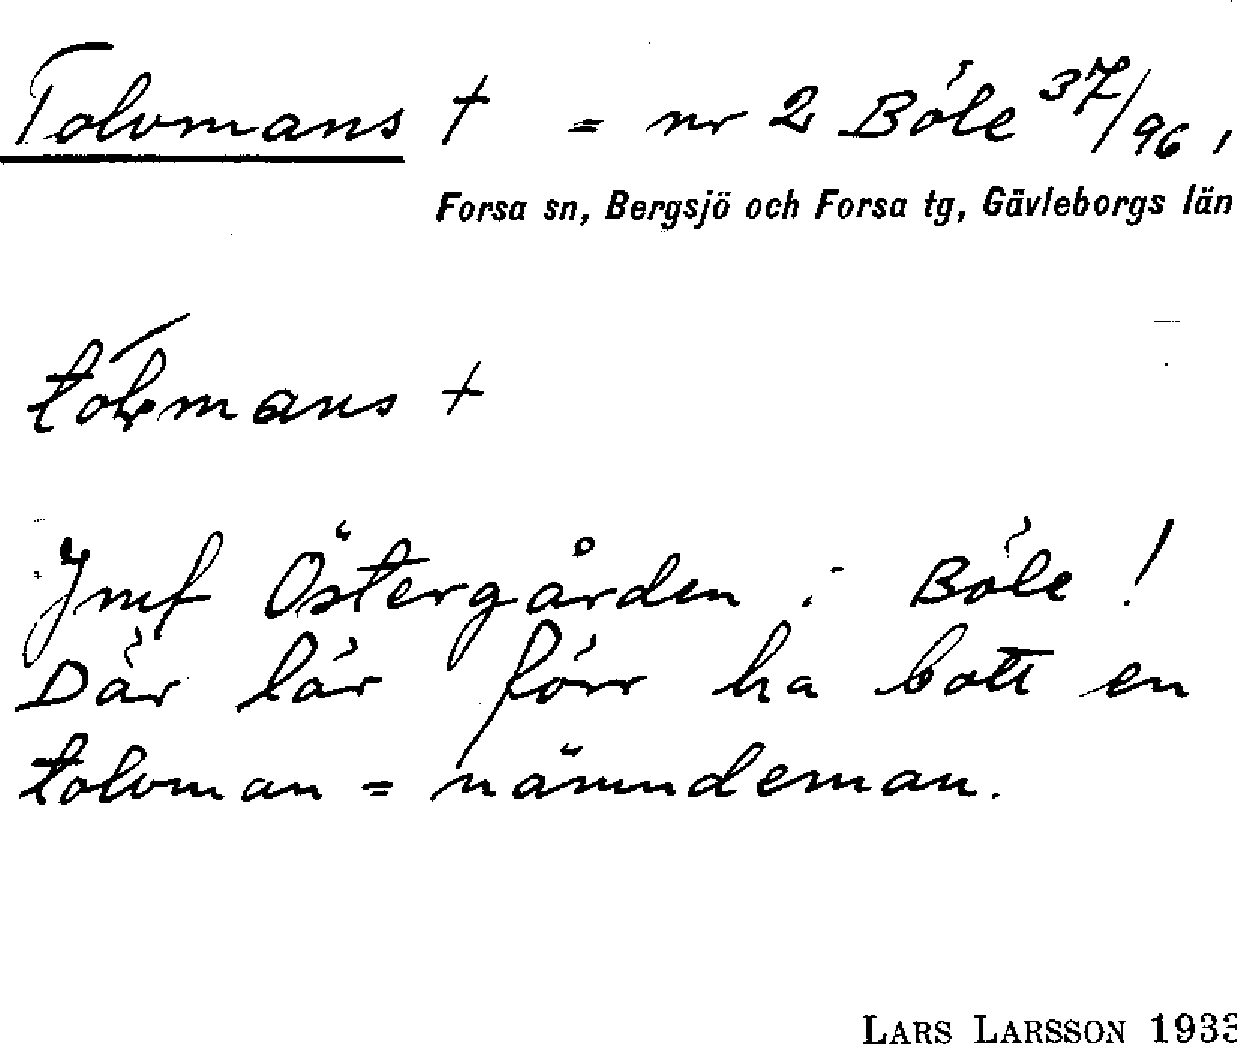 Tolvmans † = nr 2 Böle 37/96,
Forsa sn, Bergsjö och Forsa tg, Gävleborgs län
tólvmans +
Jmf Östergården i Böle!
Där lär förr ha bott en
tolvman = nämndeman.
LARS LARSSON 1933